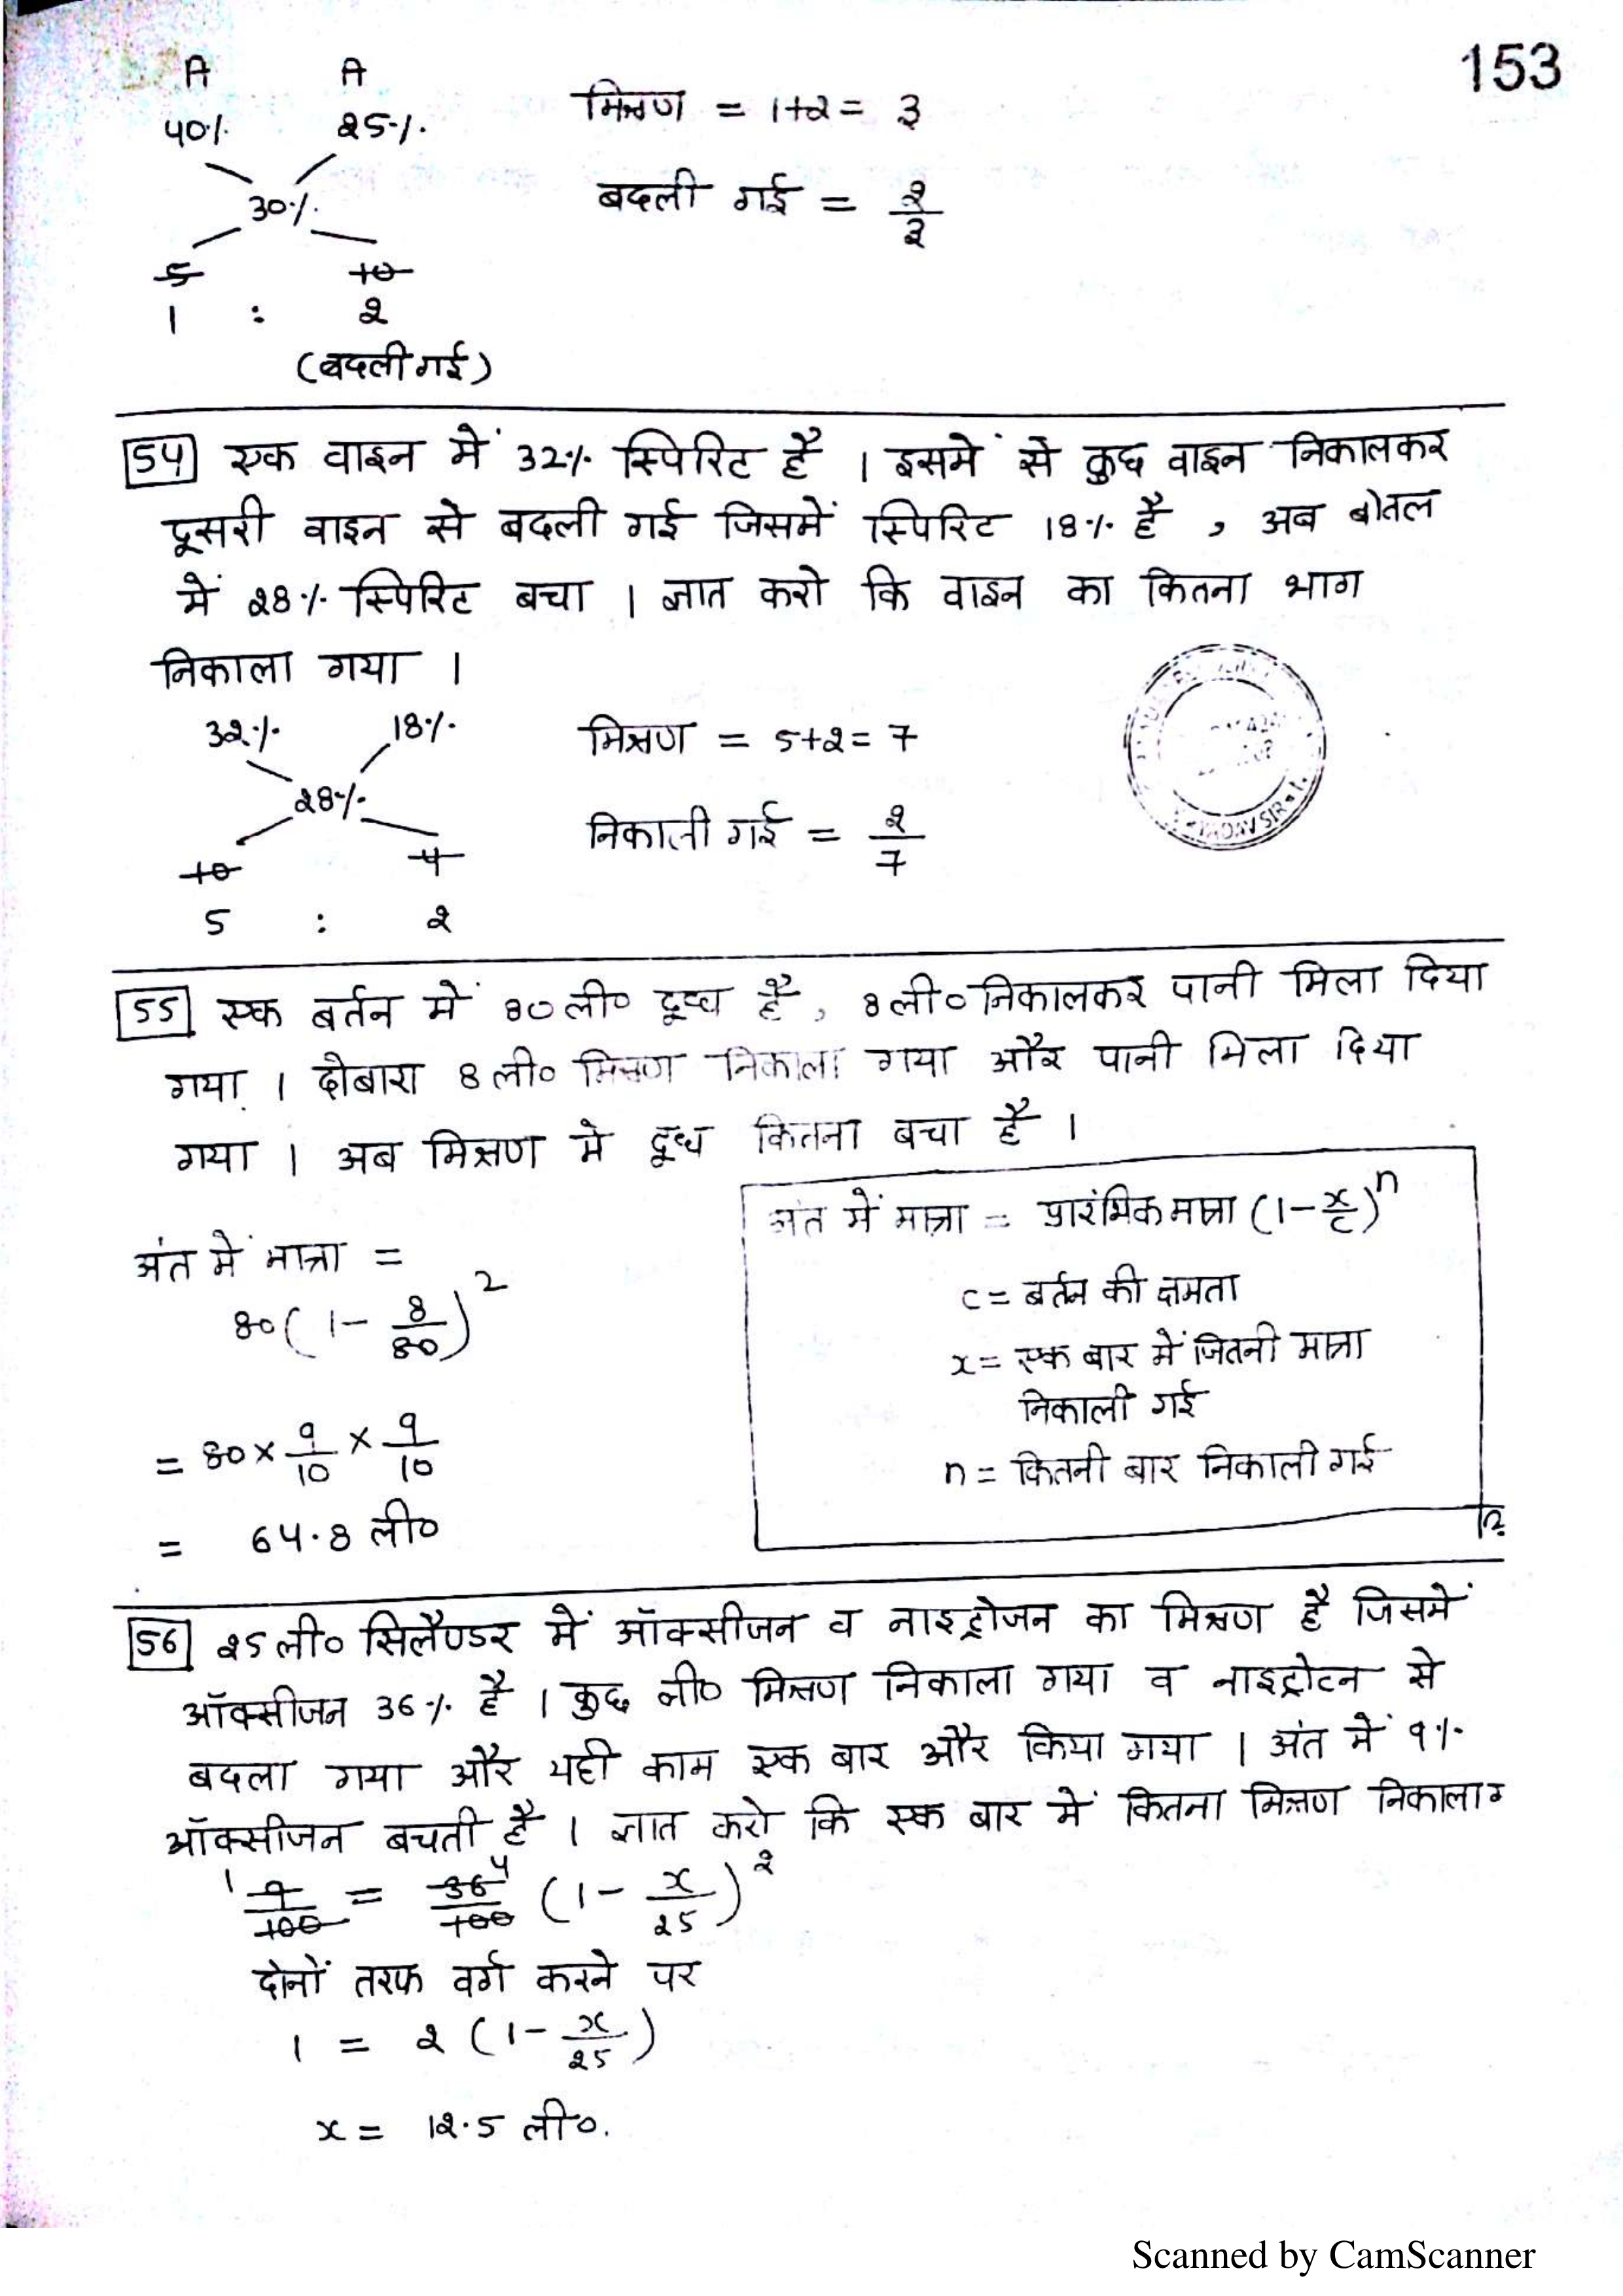 153
A A
40% 25%
30%
5 10
1 : 2
(बदली गई)
मिश्रण = 1+2 = 3
बदली गई = 2/3
54 एक वाइन में 32% स्पिरिट है । इसमे से कुछ वाइन निकालकर
दूसरी वाइन से बदली गई जिसमें स्पिरिट 18% है , अब बोतल
में 28% स्पिरिट बचा । ज्ञात करो कि वाइन का कितना भाग
निकाला गया ।
32% 18%
28%
10 4
5 : 2
मिश्रण = 5+2 = 7
निकाली गई = 2/7
55 एक बर्तन में 80 ली० दूध है , 8 ली० निकालकर पानी मिला दिया
गया । दोबारा 8 ली० मिश्रण निकाला गया और पानी मिला दिया
गया । अब मिश्रण मे दूध कितना बचा है ।
अंत में मात्रा =
80 (1 - 8/80)^2
= 80 × 9/10 × 9/10
= 64.8 ली०
अंत में मात्रा = प्रारंभिक मात्रा (1 - x/c)^n
c = बर्तन की क्षमता
x = एक बार में जितनी मात्रा
निकाली गई
n = कितनी बार निकाली गई
56 25 ली० सिलैण्डर में ऑक्सीजन व नाइट्रोजन का मिश्रण है जिसमें
ऑक्सीजन 36% है । कुछ ली० मिश्रण निकाला गया व नाइट्रोटन से
बदला गया और यही काम एक बार और किया गया । अंत में 9%
ऑक्सीजन बचती है । ज्ञात करो कि एक बार में कितना मिश्रण निकाला ग
1 9/100 = 36/100 4 (1 - x/25)^2
दोनों तरफ वर्ग करने पर
1 = 2 (1 - x/25)
x = 12.5 ली०.
Scanned by CamScanner